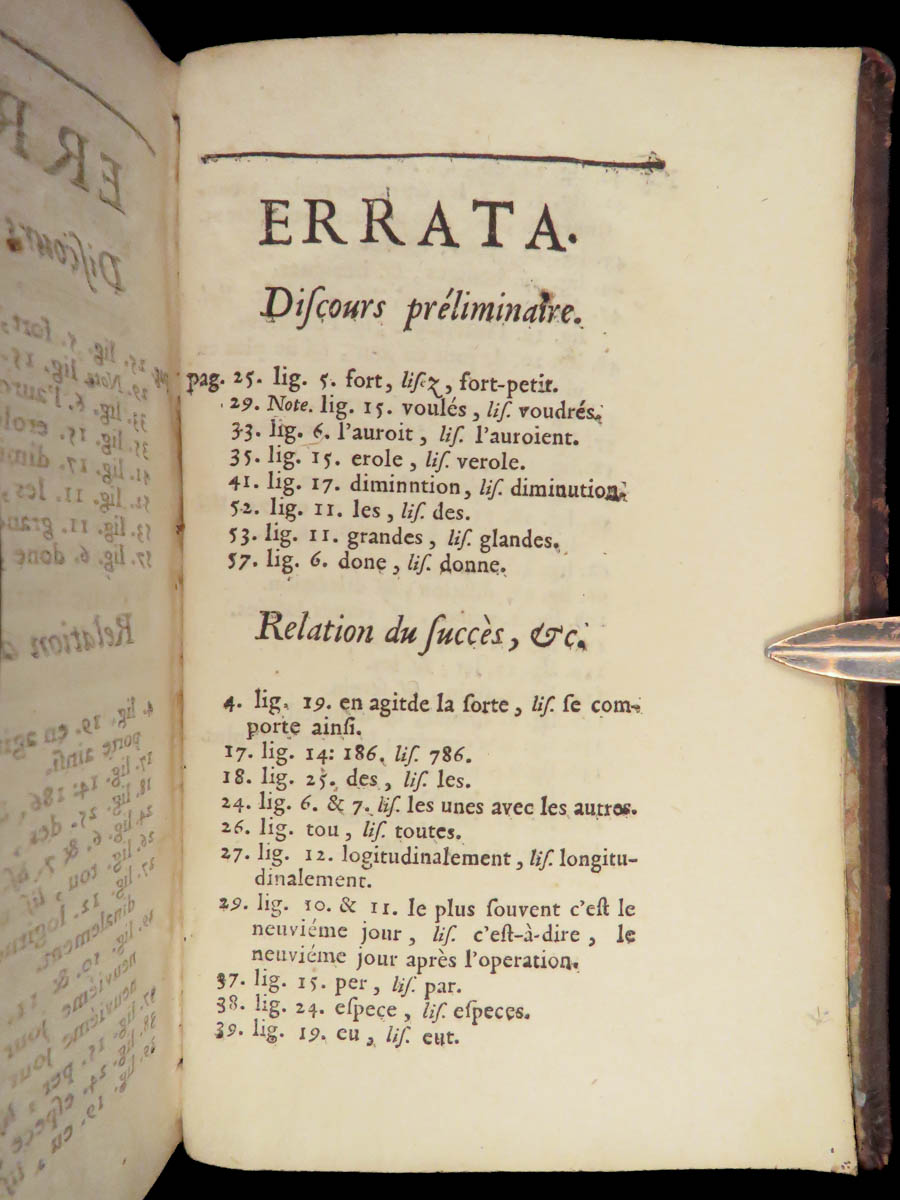 ERRATA.
Diſcours préliminaire.
pag. 25. lig. 5. fort, liſez, fort-petit.
29. Note. lig. 15. voulés, liſ. voudrés.
33. lig. 6. l'auroit, liſ. l'auroient.
35. lig. 15. erole, liſ. verole.
41. lig. 17. diminntion, liſ. diminution.
52. lig. 11. les, liſ. des.
53. lig. 11. grandes, liſ. glandes.
57. lig. 6. done, liſ. donne.
Relation du ſuccès, &c.
4. lig. 19. en agitde la ſorte, liſ. ſe com-
porte ainſi.
17. lig. 14: 186. liſ. 786.
18. lig. 25. des, liſ. les.
24. lig. 6. & 7. liſ. les unes avec les autres.
26. lig. tou, liſ. toutes.
27. lig. 12. logitudinalement, liſ. longitu-
dinalement.
29. lig. 10. & 11. le plus ſouvent c'eſt le
neuviéme jour, liſ. c'eſt-à-dire, le
neuviéme jour après l'operation.
37. lig. 15. per, liſ. par.
38. lig. 24. eſpece, liſ. eſpeces.
39. lig. 19. eu, liſ. eut.